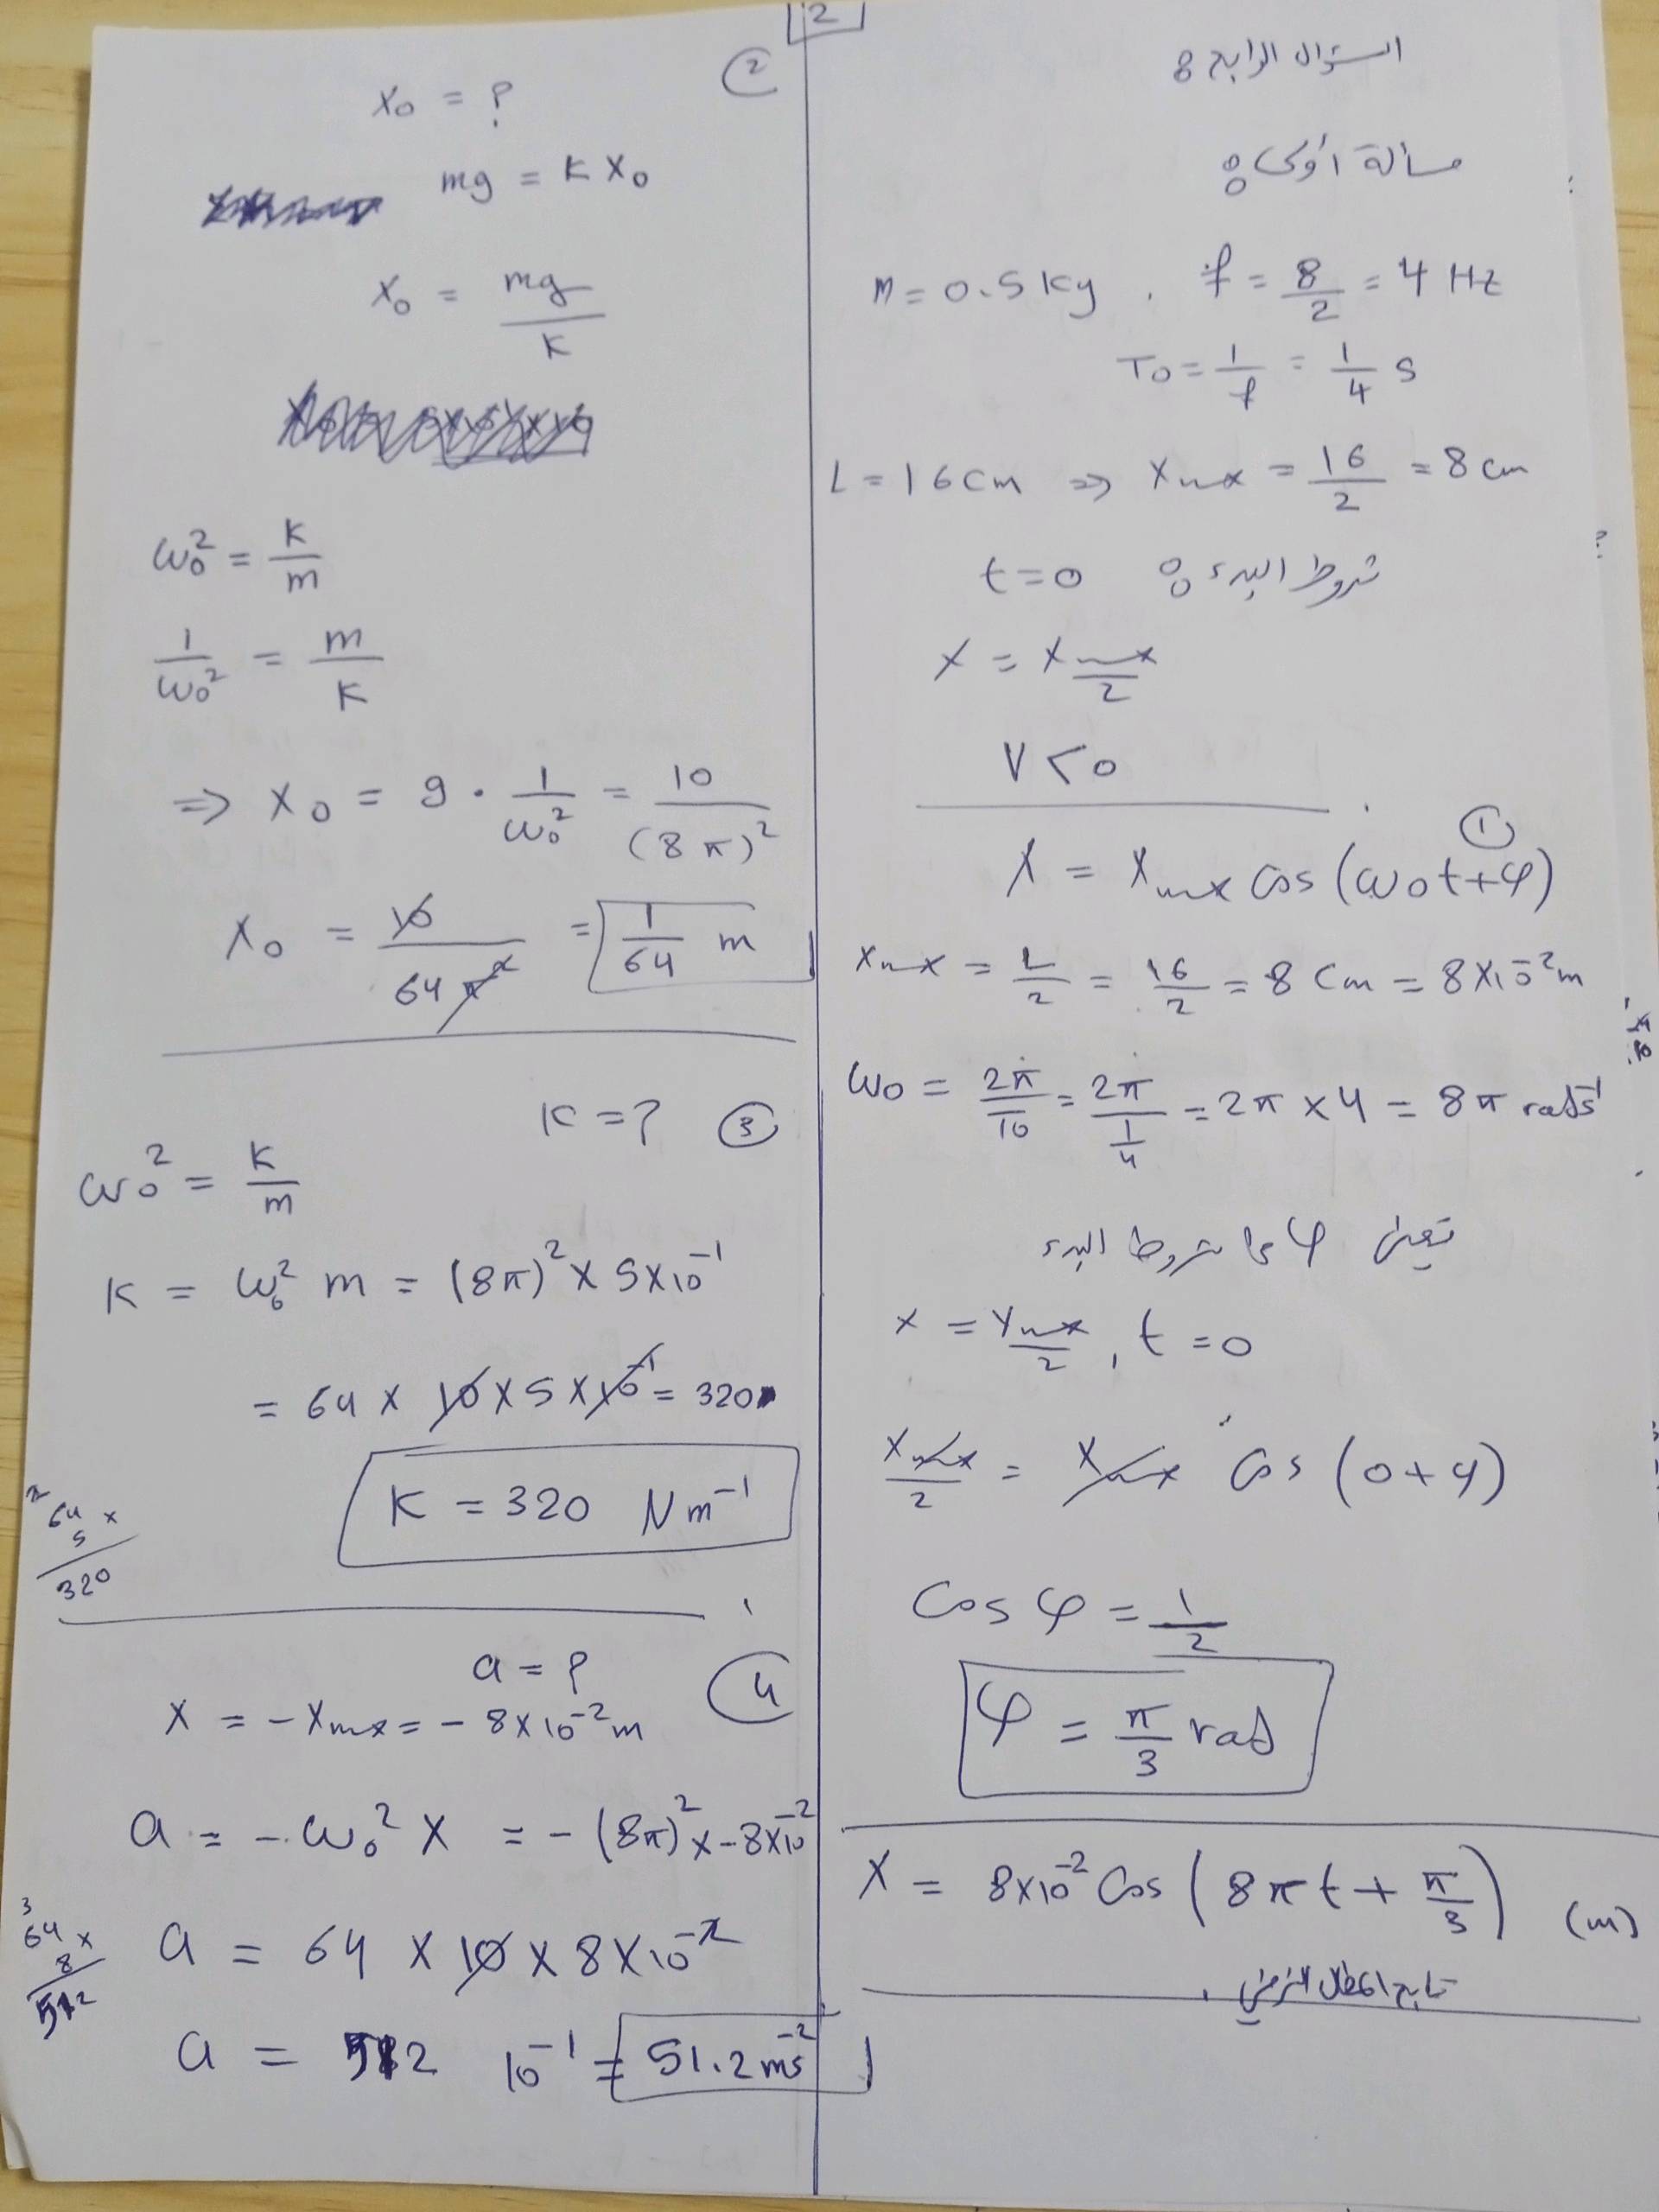 2
السؤال الرابع :
مسألة أولى :
m = 0.5 kg , f = 8/2 = 4 Hz
T0 = 1/f = 1/4 s
L = 16 cm ⇒ Xmax = 16/2 = 8 cm
شروط البدء : t = 0
X = Xmax/2
V < 0
①
X = Xmax cos (ω0t + φ)
Xmax = L/2 = 16/2 = 8 cm = 8×10^-2 m
ω0 = 2π/T0 = 2π/(1/4) = 2π × 4 = 8π rad s^-1
نعين φ من شروط البدء
x = Xmax/2 , t = 0
Xmax/2 = Xmax cos (0 + φ)
cos φ = 1/2
φ = π/3 rad
X = 8×10^-2 cos (8πt + π/3) (m)
تابع المطال الزمني
②
X0 = ?
mg = K X0
X0 = mg/K
ω0^2 = K/m
1/ω0^2 = m/K
⇒ X0 = g · 1/ω0^2 = 10/(8π)^2
X0 = 10/64π^2 = 1/64 m
K = ? ③
ω0^2 = K/m
K = ω0^2 m = (8π)^2 × 5×10^-1
= 64 × 10 × 5 × 10^-1 = 320
K = 320 N m^-1
2
64 ×
5
320
a = ? ④
X = - Xmax = - 8×10^-2 m
a = - ω0^2 X = - (8π)^2 × - 8×10^-2
a = 64 × 10 × 8×10^-2
3
64 ×
8
512
a = 512 10^-1 = 51.2 ms^-2